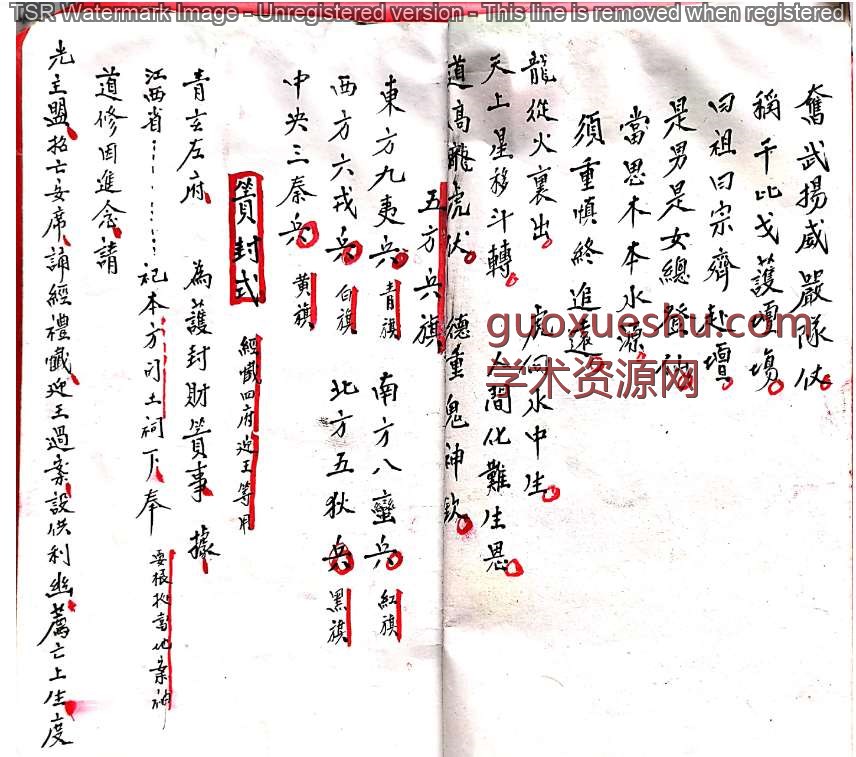 TSR Watermark Image - Unregistered version - This line is removed when registered
奮武揚威嚴隊伏
稱干比戈護壇場
曰祖曰宗齊赴壇
是男是女總登仙
當思木本水源
須重慎終追遠
龍從火裏出 虎向水中生
天上星移斗轉 人間化難生恩
道高龍虎伏 德重鬼神欽
五方兵旗
東方九夷兵 青旗 南方八蠻兵 紅旗
西方六戎兵 白旗 北方五狄兵 黑旗
中央三秦兵 黃旗
籄封式 經懺四府迎王等用
青玄左府 為護封財籄事 據
江西省 祀本方司土祠下奉
道修因進念請
光主盟招亡安席誦經禮懺迎王過案設供利幽薦亡上生度
guoxueshu.com
学术资源网